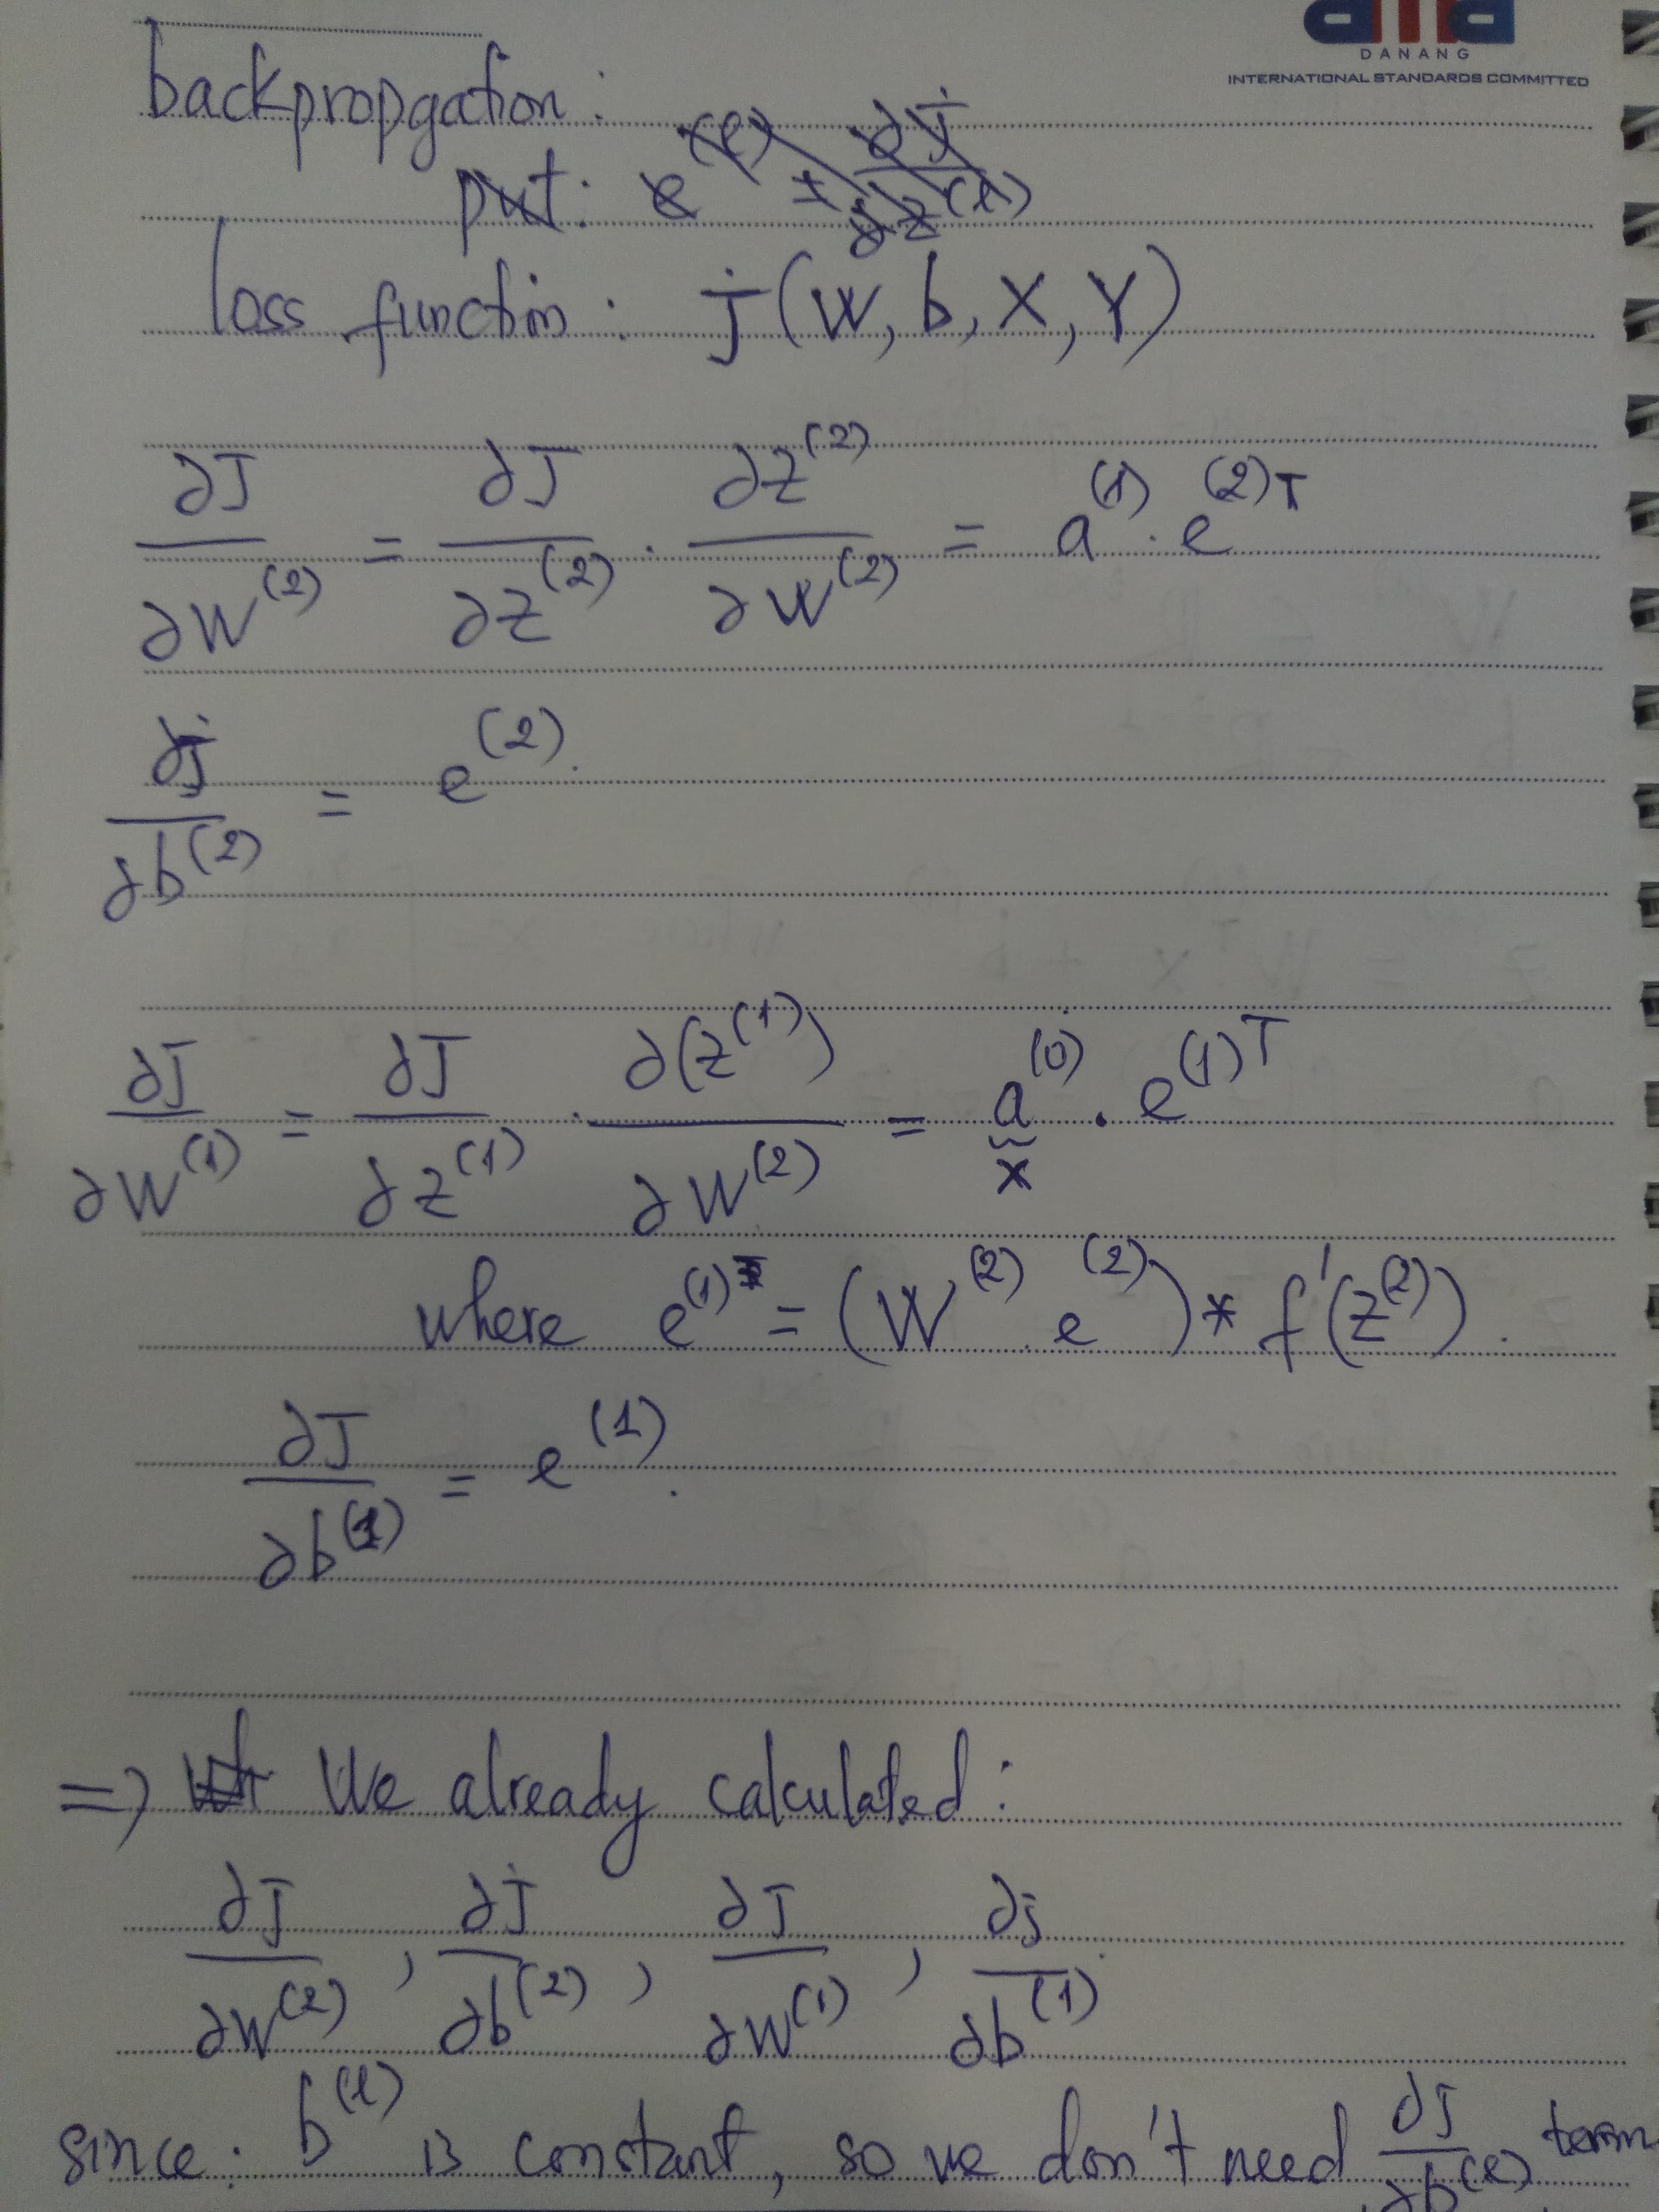 ana
DANANG
INTERNATIONAL STANDARDS COMMITTED
backpropgation:
put: e^(l) = ∂J/∂z^(l)
loss function: J(W, b, X, Y)
∂J/∂W^(2) = ∂J/∂Z^(2) . ∂Z^(2)/∂W^(2) = a^(1) . e^(2)T
∂J/∂b^(2) = e^(2).
∂J/∂W^(1) = ∂J/∂Z^(1) . ∂(Z^(1))/∂W^(2) = a^(0) . e^(1)T
x
where e^(1) = (W^(2) . e^(2)) * f'(Z^(2)).
∂J/∂b^(1) = e^(1).
=> We already calculated:
∂J/∂W^(2), ∂J/∂b^(2), ∂J/∂W^(1), ∂J/∂b^(1)
since: b^(l) is constant, so we don't need ∂J/∂b^(l) term